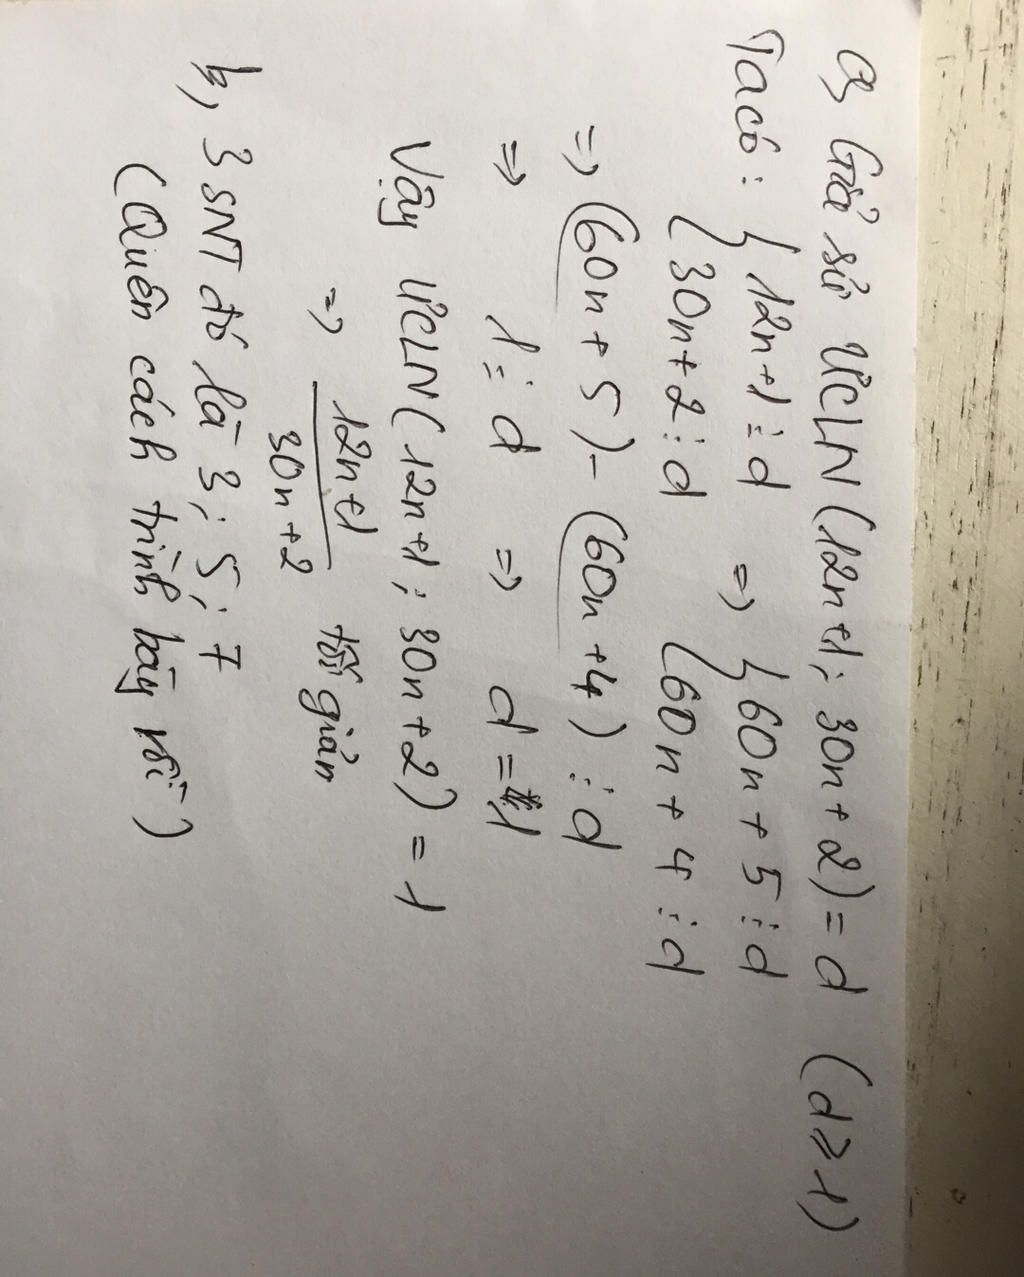 a, Giả sử ƯCLN(12n+1; 30n+2) = d (d ≥ 1)
Ta có: { 12n+1 ⋮ d => { 60n + 5 ⋮ d
{ 30n+2 ⋮ d { 60n + 4 ⋮ d
=> (60n + 5) - (60n + 4) ⋮ d
=> 1 ⋮ d => d = 1
Vậy ƯCLN(12n+1; 30n+2) = 1
=> 12n+1
30n+2 tối giản
b, 3 SNT đó là 3; 5; 7
(Quên cách trình bày rồi)